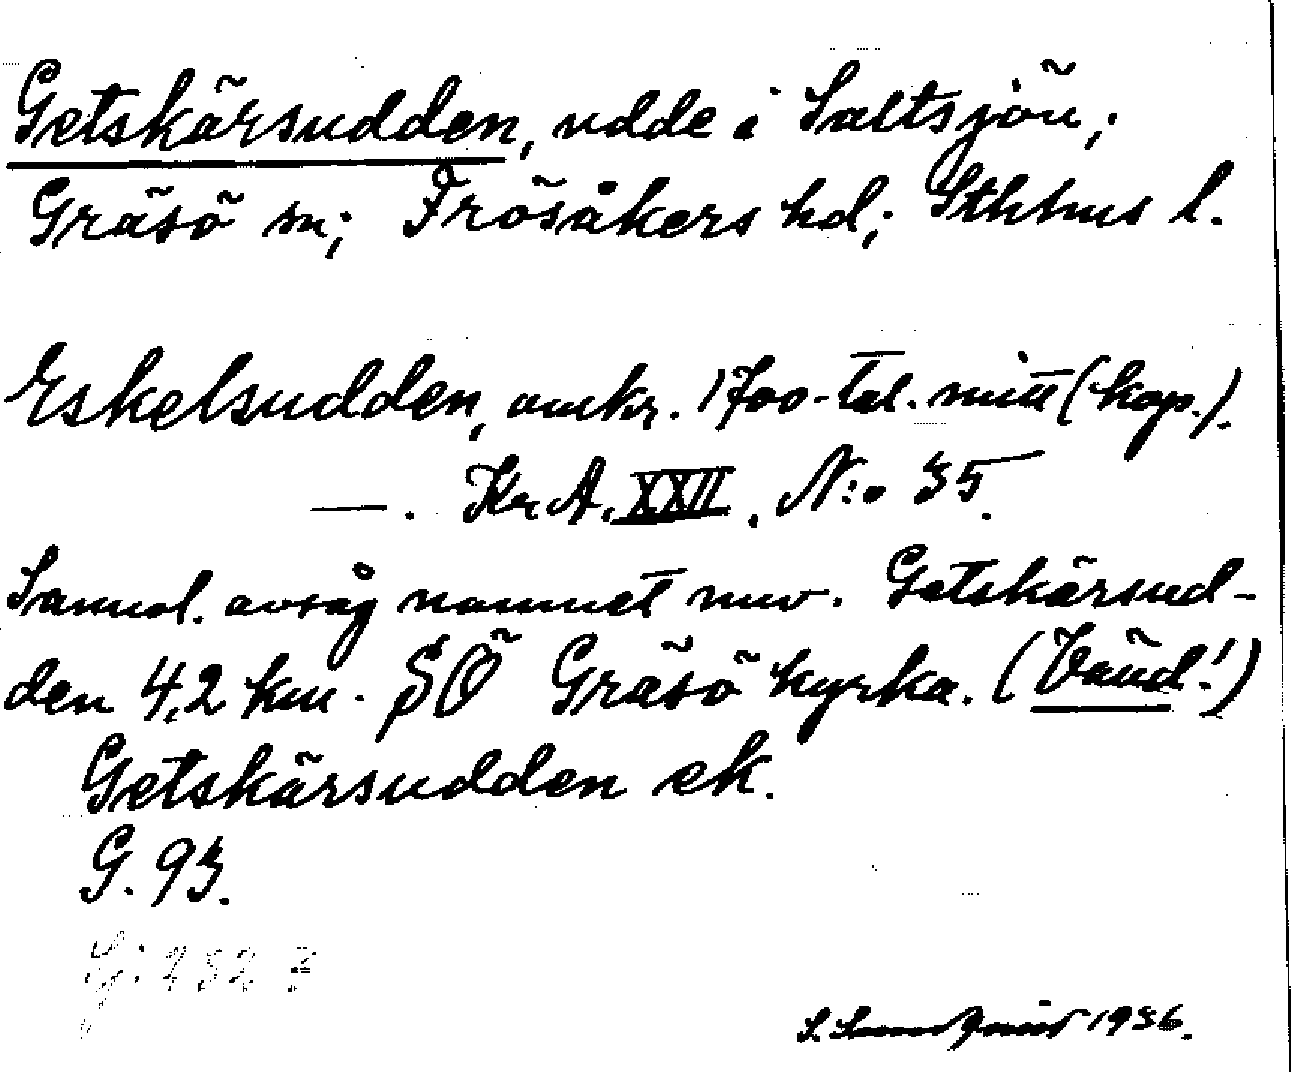 Getskärsudden, udde i Saltsjön;
Gräsö sn; Frösåkers hd; Sthlms l.
Eskelsudden, omkr. 1700-tal. mitt (kop.).
—. Kr A, XXII, N:o 35.
Sannol. avsåg namnet nuv. Getskärsud-
den 4,2 km. SÖ Gräsö kyrka. (Vänd!)
Getskärsudden ek.
G. 93.
1936.